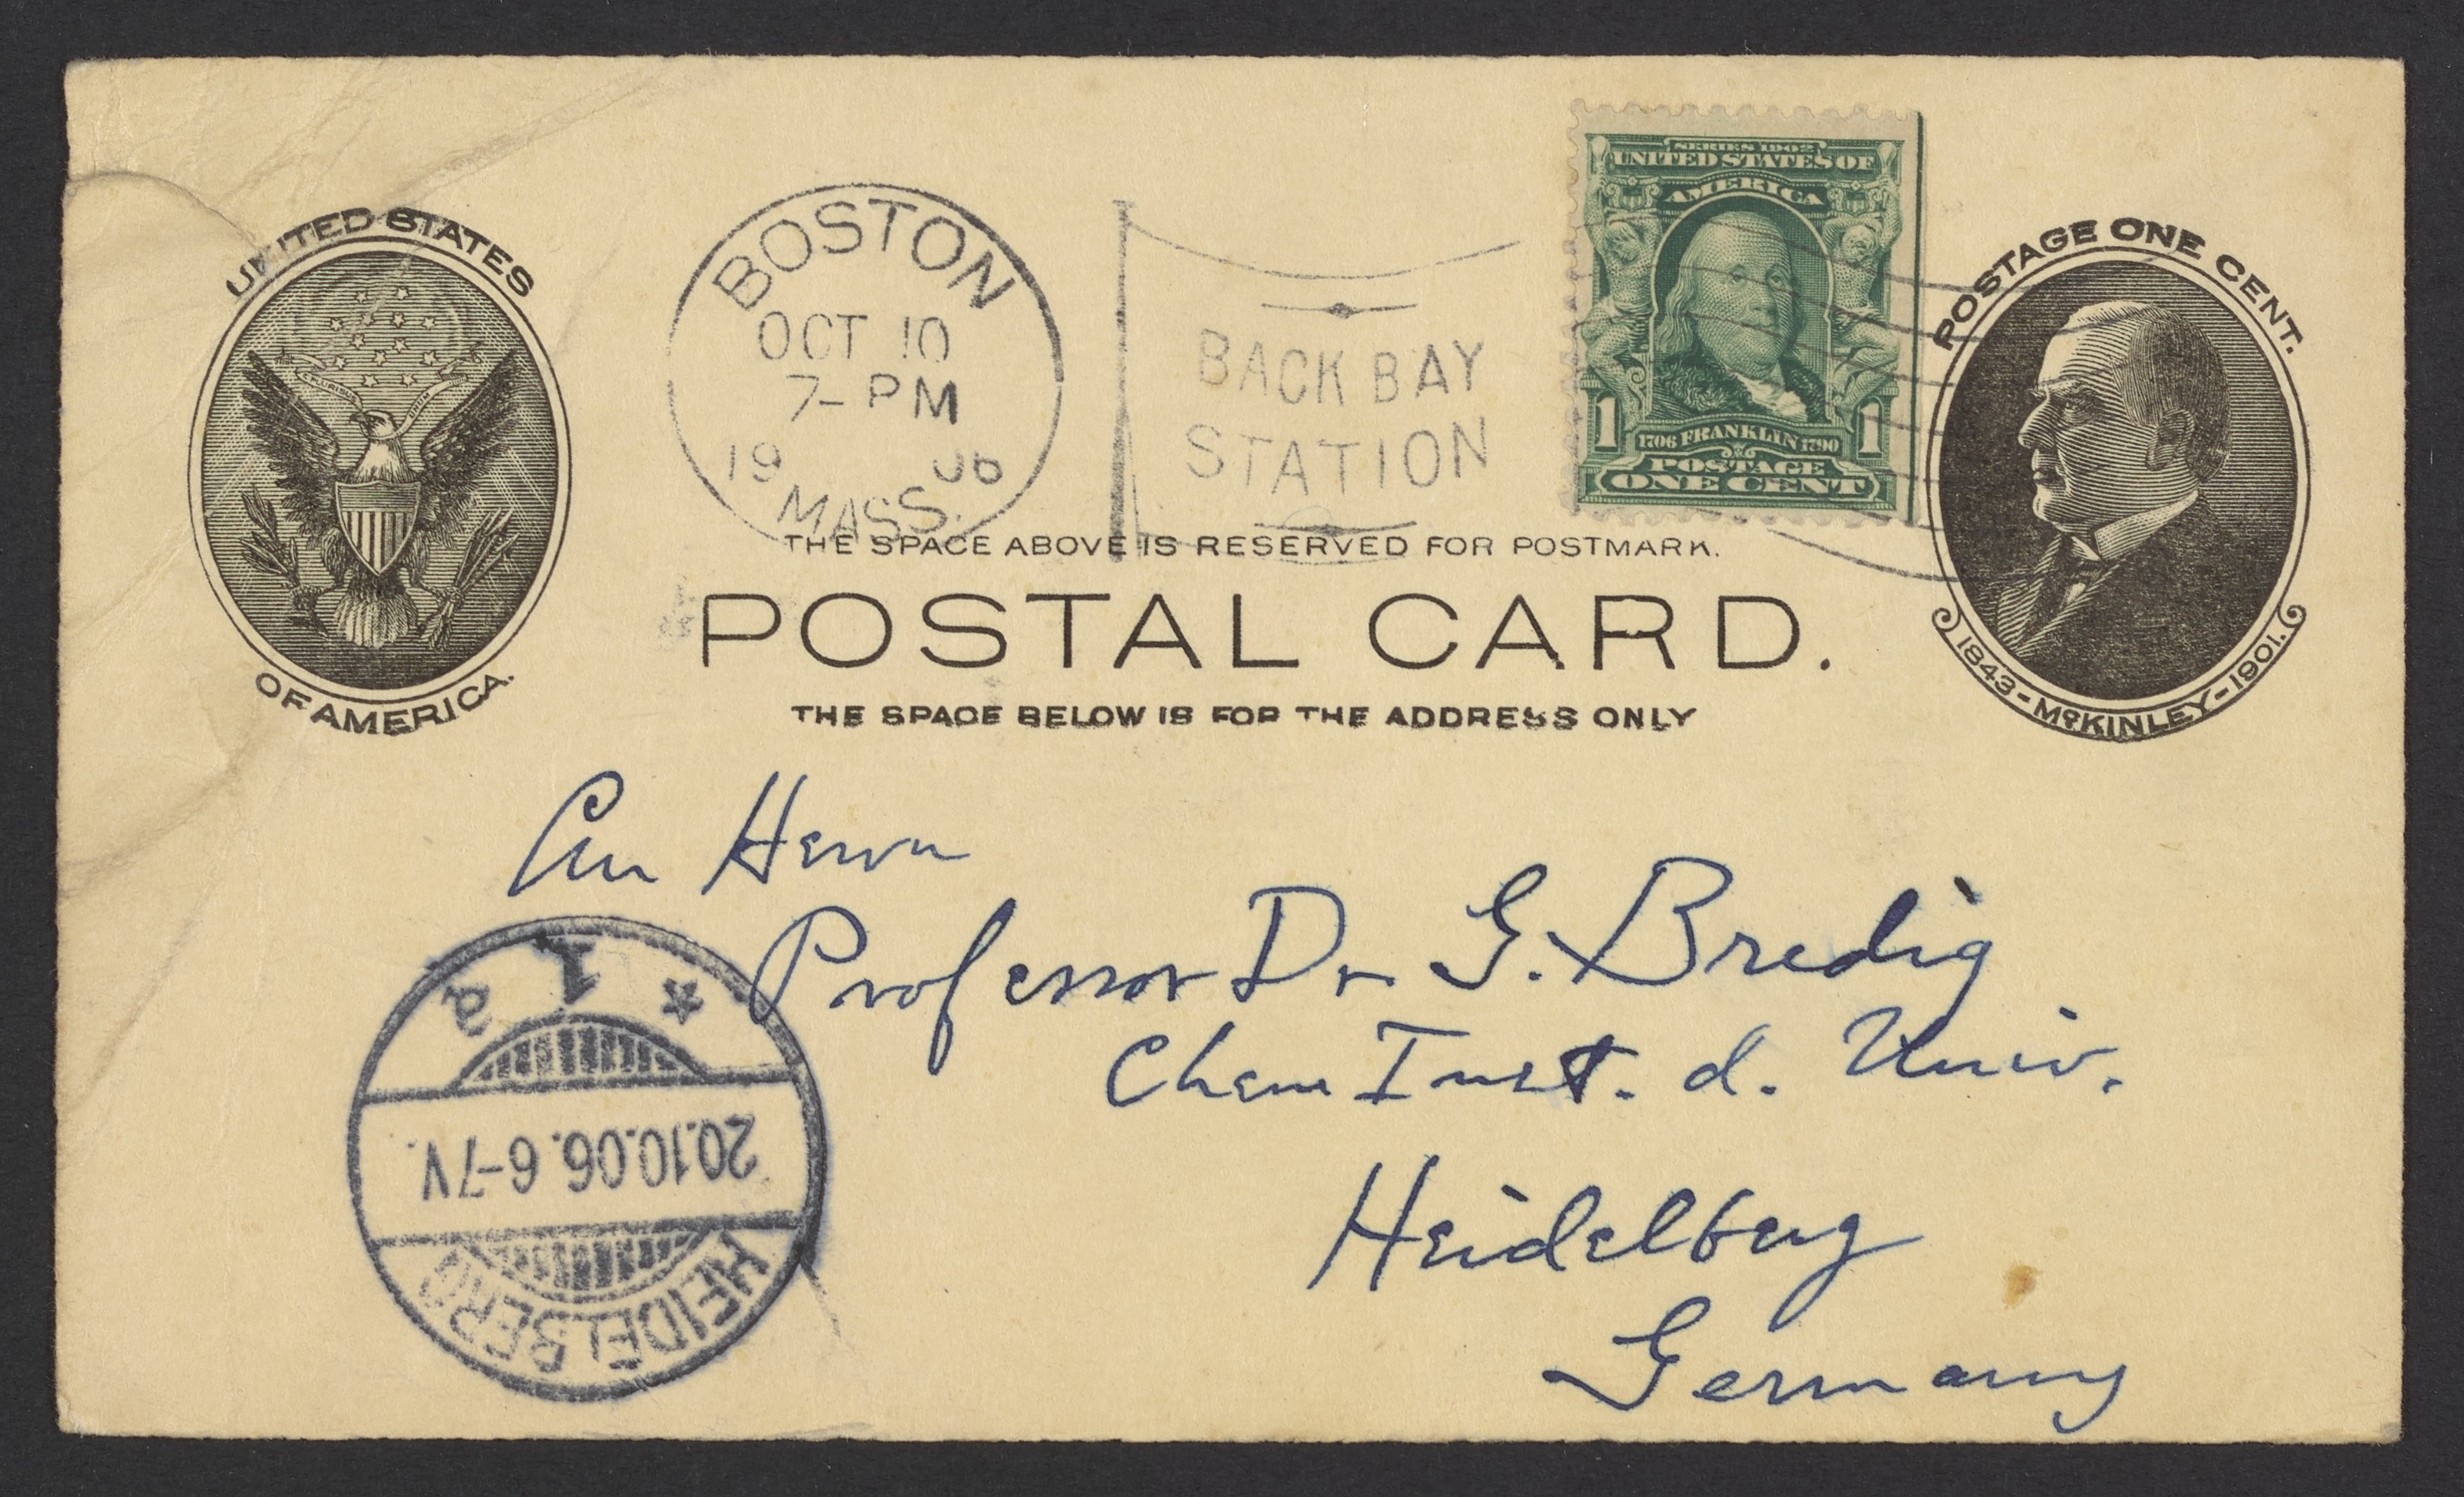 UNITED STATES
OF AMERICA.
E PLURIBUS UNUM
BOSTON
OCT 10
7-PM
1906
MASS.
BACK BAY
STATION
SERIES 1902
UNITED STATES OF
AMERICA
1 1
1706 FRANKLIN 1790
POSTAGE
ONE CENT
POSTAGE ONE CENT.
1843-McKINLEY-1901.
THE SPACE ABOVE IS RESERVED FOR POSTMARK.
POSTAL CARD.
THE SPACE BELOW IS FOR THE ADDRESS ONLY
An Herrn
Professor Dr G. Bredig
Chem Inst. d. Univ.
Heidelberg
Germany
HEIDELBERG
20.10.06. 6-7V.
* 1 a